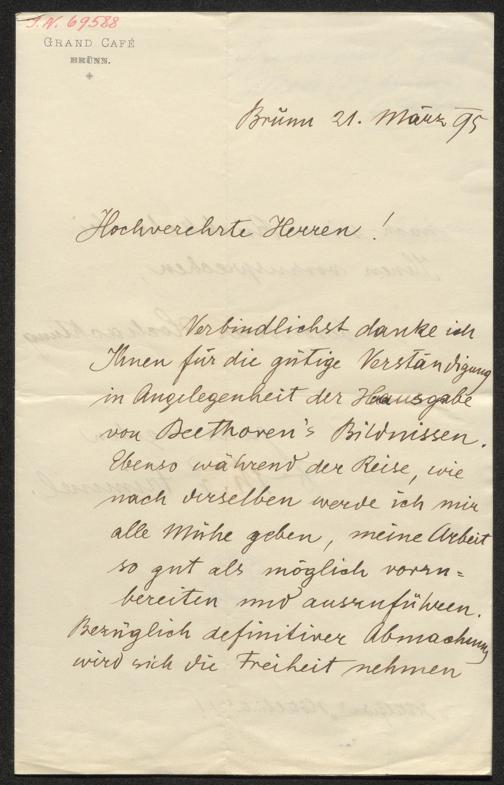 I.N. 69588
GRAND CAFÉ
BRÜNN.
Brünn 21. März 95
Hochverehrte Herren!
Verbindlichst danke ich
Ihnen für die gütige Verständigung
in Angelegenheit der Hausgabe
von Beethoven's Bildnissen.
Ebenso während der Reise, wie
nach derselben werde ich mir
alle Mühe geben, meine Arbeit
so gut als möglich vorzu=
bereiten und auszuführen.
Bezüglich definitiver Abmachung
wird sich die Freiheit nehmen